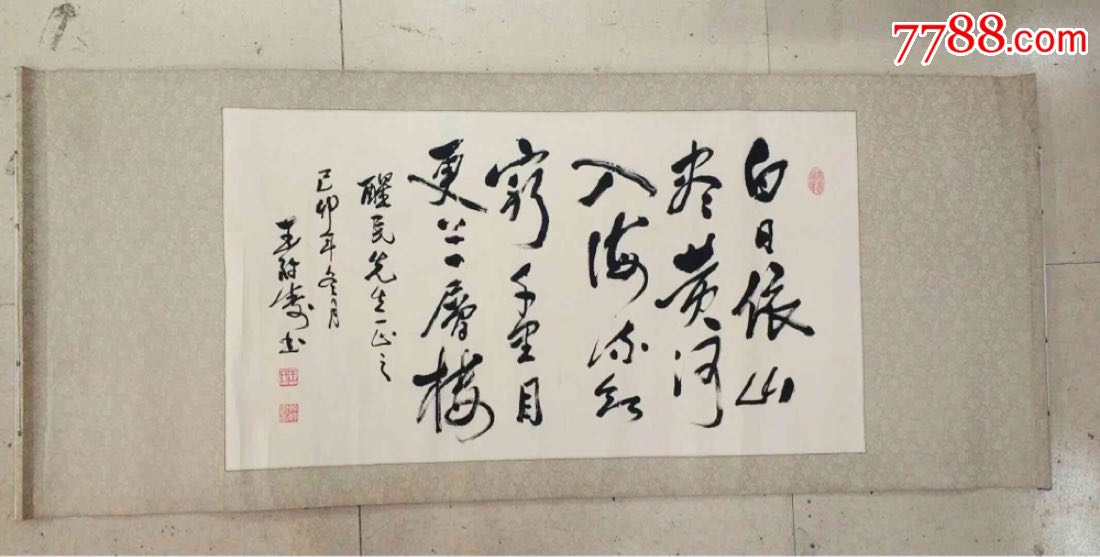 7788.com
白日依山
盡黄河
入海流欲
窮千里目
更上一層楼
醒民先生正之
己卯年冬月
王 书